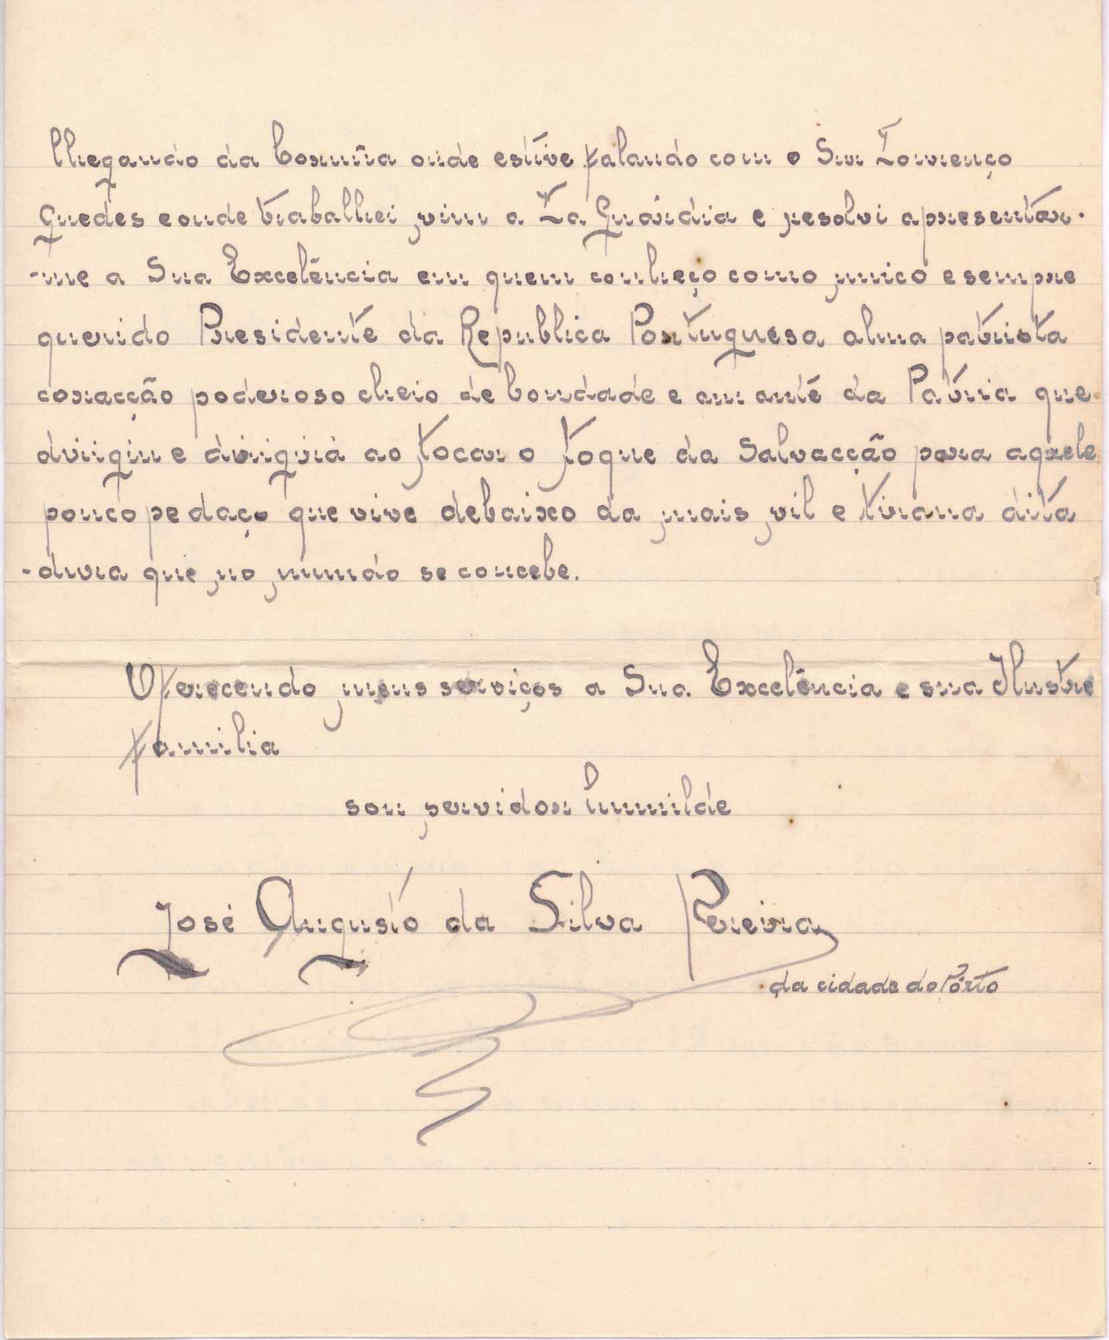 Chegando da Coruña onde estive falando com o Snr Lourenço
Guedes e onde trabalhei, vim a La Guárdia e resolvi apresentar-
-me a Sua Excelência em quem conheço como unico e sempre
querido Presidente da Republica Portuguesa, alma patriota
coracção poderoso cheio de bondade e amante da Patria que
dirigiu e dirigirá ao tocar o toque da Salvacção para aquele
pouco pedaço que vive debaixo da mais vil e tirana dita
-dura que no mundo se concebe.
Oferecendo meus serviços a Sua Excelência e sua Ilustre
familia
sou servidor humilde
José Augusto da Silva Pereira
da cidade do Pôrto